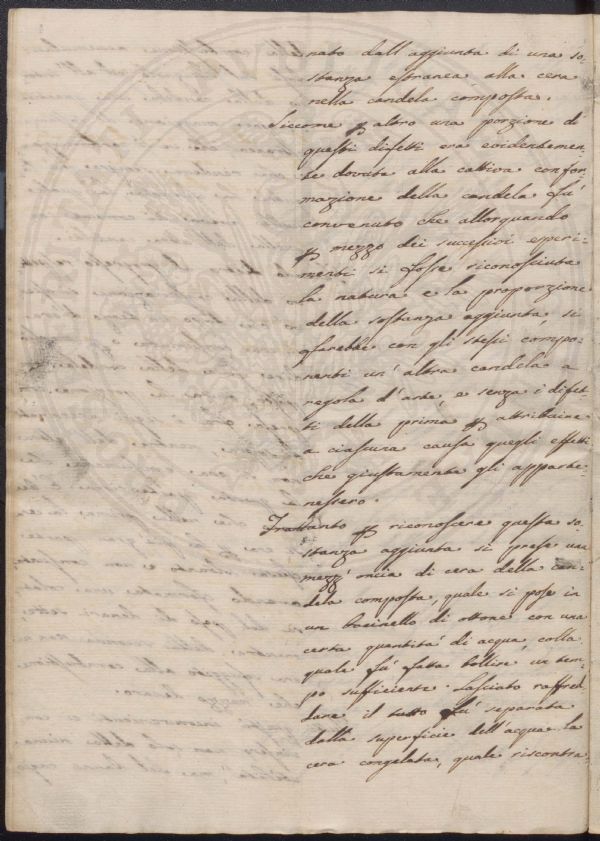 nato dall'aggiunta di una so-
stanza estranea alla cera
nella candela composta.
Siccome p altro una porzione di
questi difetti era evidentemen-
te dovuta alla cattiva confor
mazione della candela fu'
convenuto che allorquando
p mezzo dei successivi esperi-
menti si fosse riconosciuta
la natura e la proporzione
della sostanza aggiunta, si
farebbe con gli stessi compo-
nenti un' altra candela a
regola d'arte, e senza i difet
ti della prima p attribuire
a ciascuna causa quegli effetti
che giustamente gli apparte-
nessero.
Frattanto p riconoscere questa so-
stanza aggiunta si prese una
mezz' oncia di cera della can-
dela composta, quale si pose in
un bacinello di ottone con una
certa quantità di acqua, colla
quale fu' fatta bollire un tem
po sufficiente. Lasciato raffred
dare il tutto fu' separata
dalla superficie dell'acqua la
cera congelata, quale riscontra